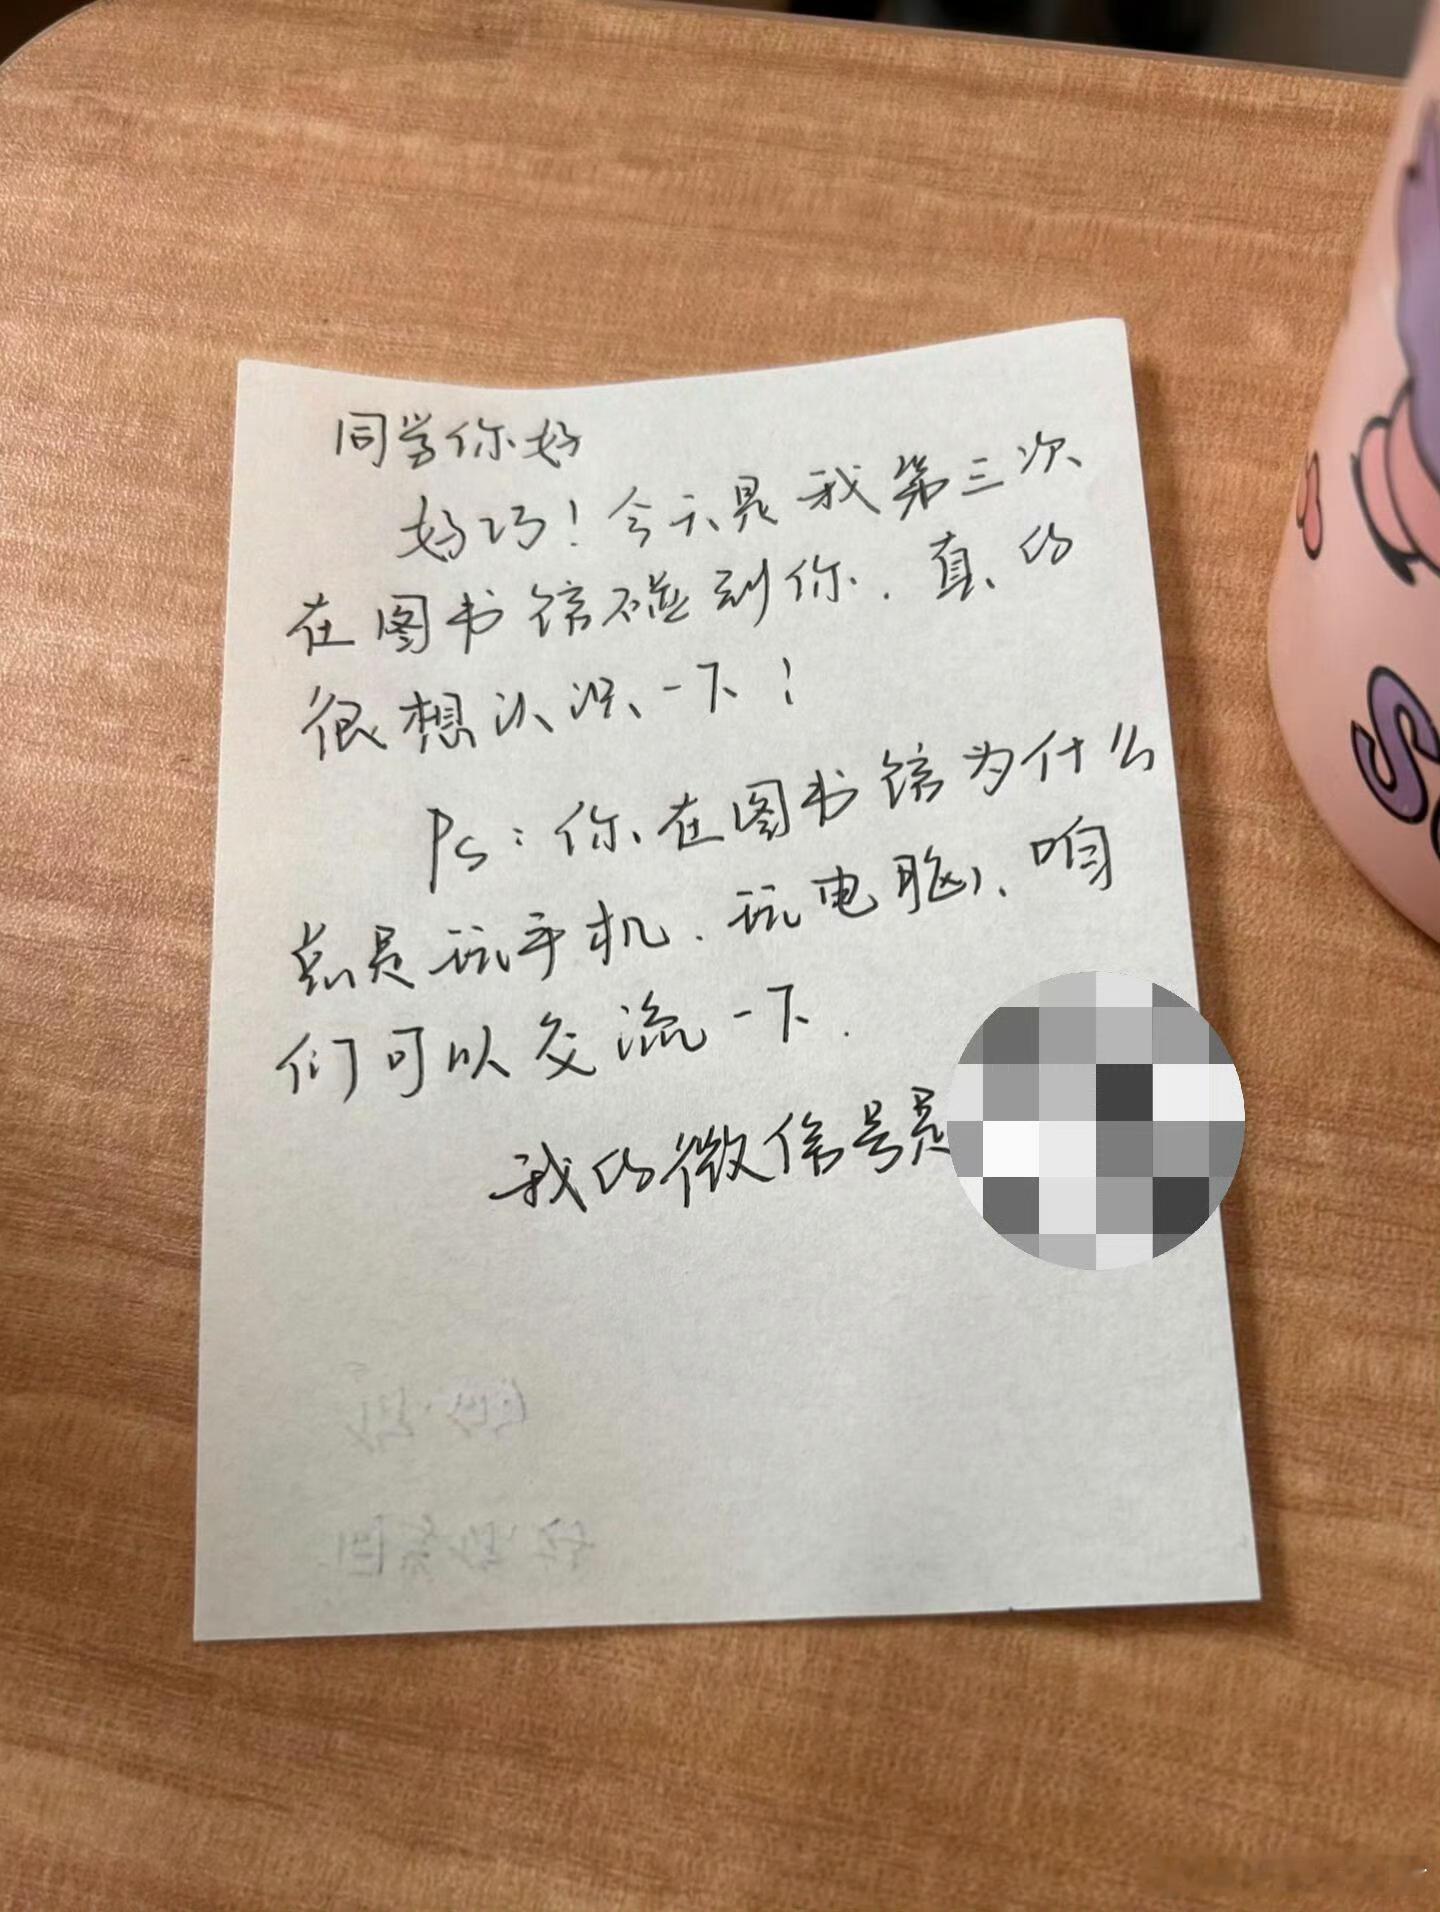 同学你好
好巧！今天是我第三次
在图书馆碰到你.真的
很想认识一下！
Ps：你在图书馆为什么
总是玩手机.玩电脑、咱
们可以交流一下.
我的微信号是
S